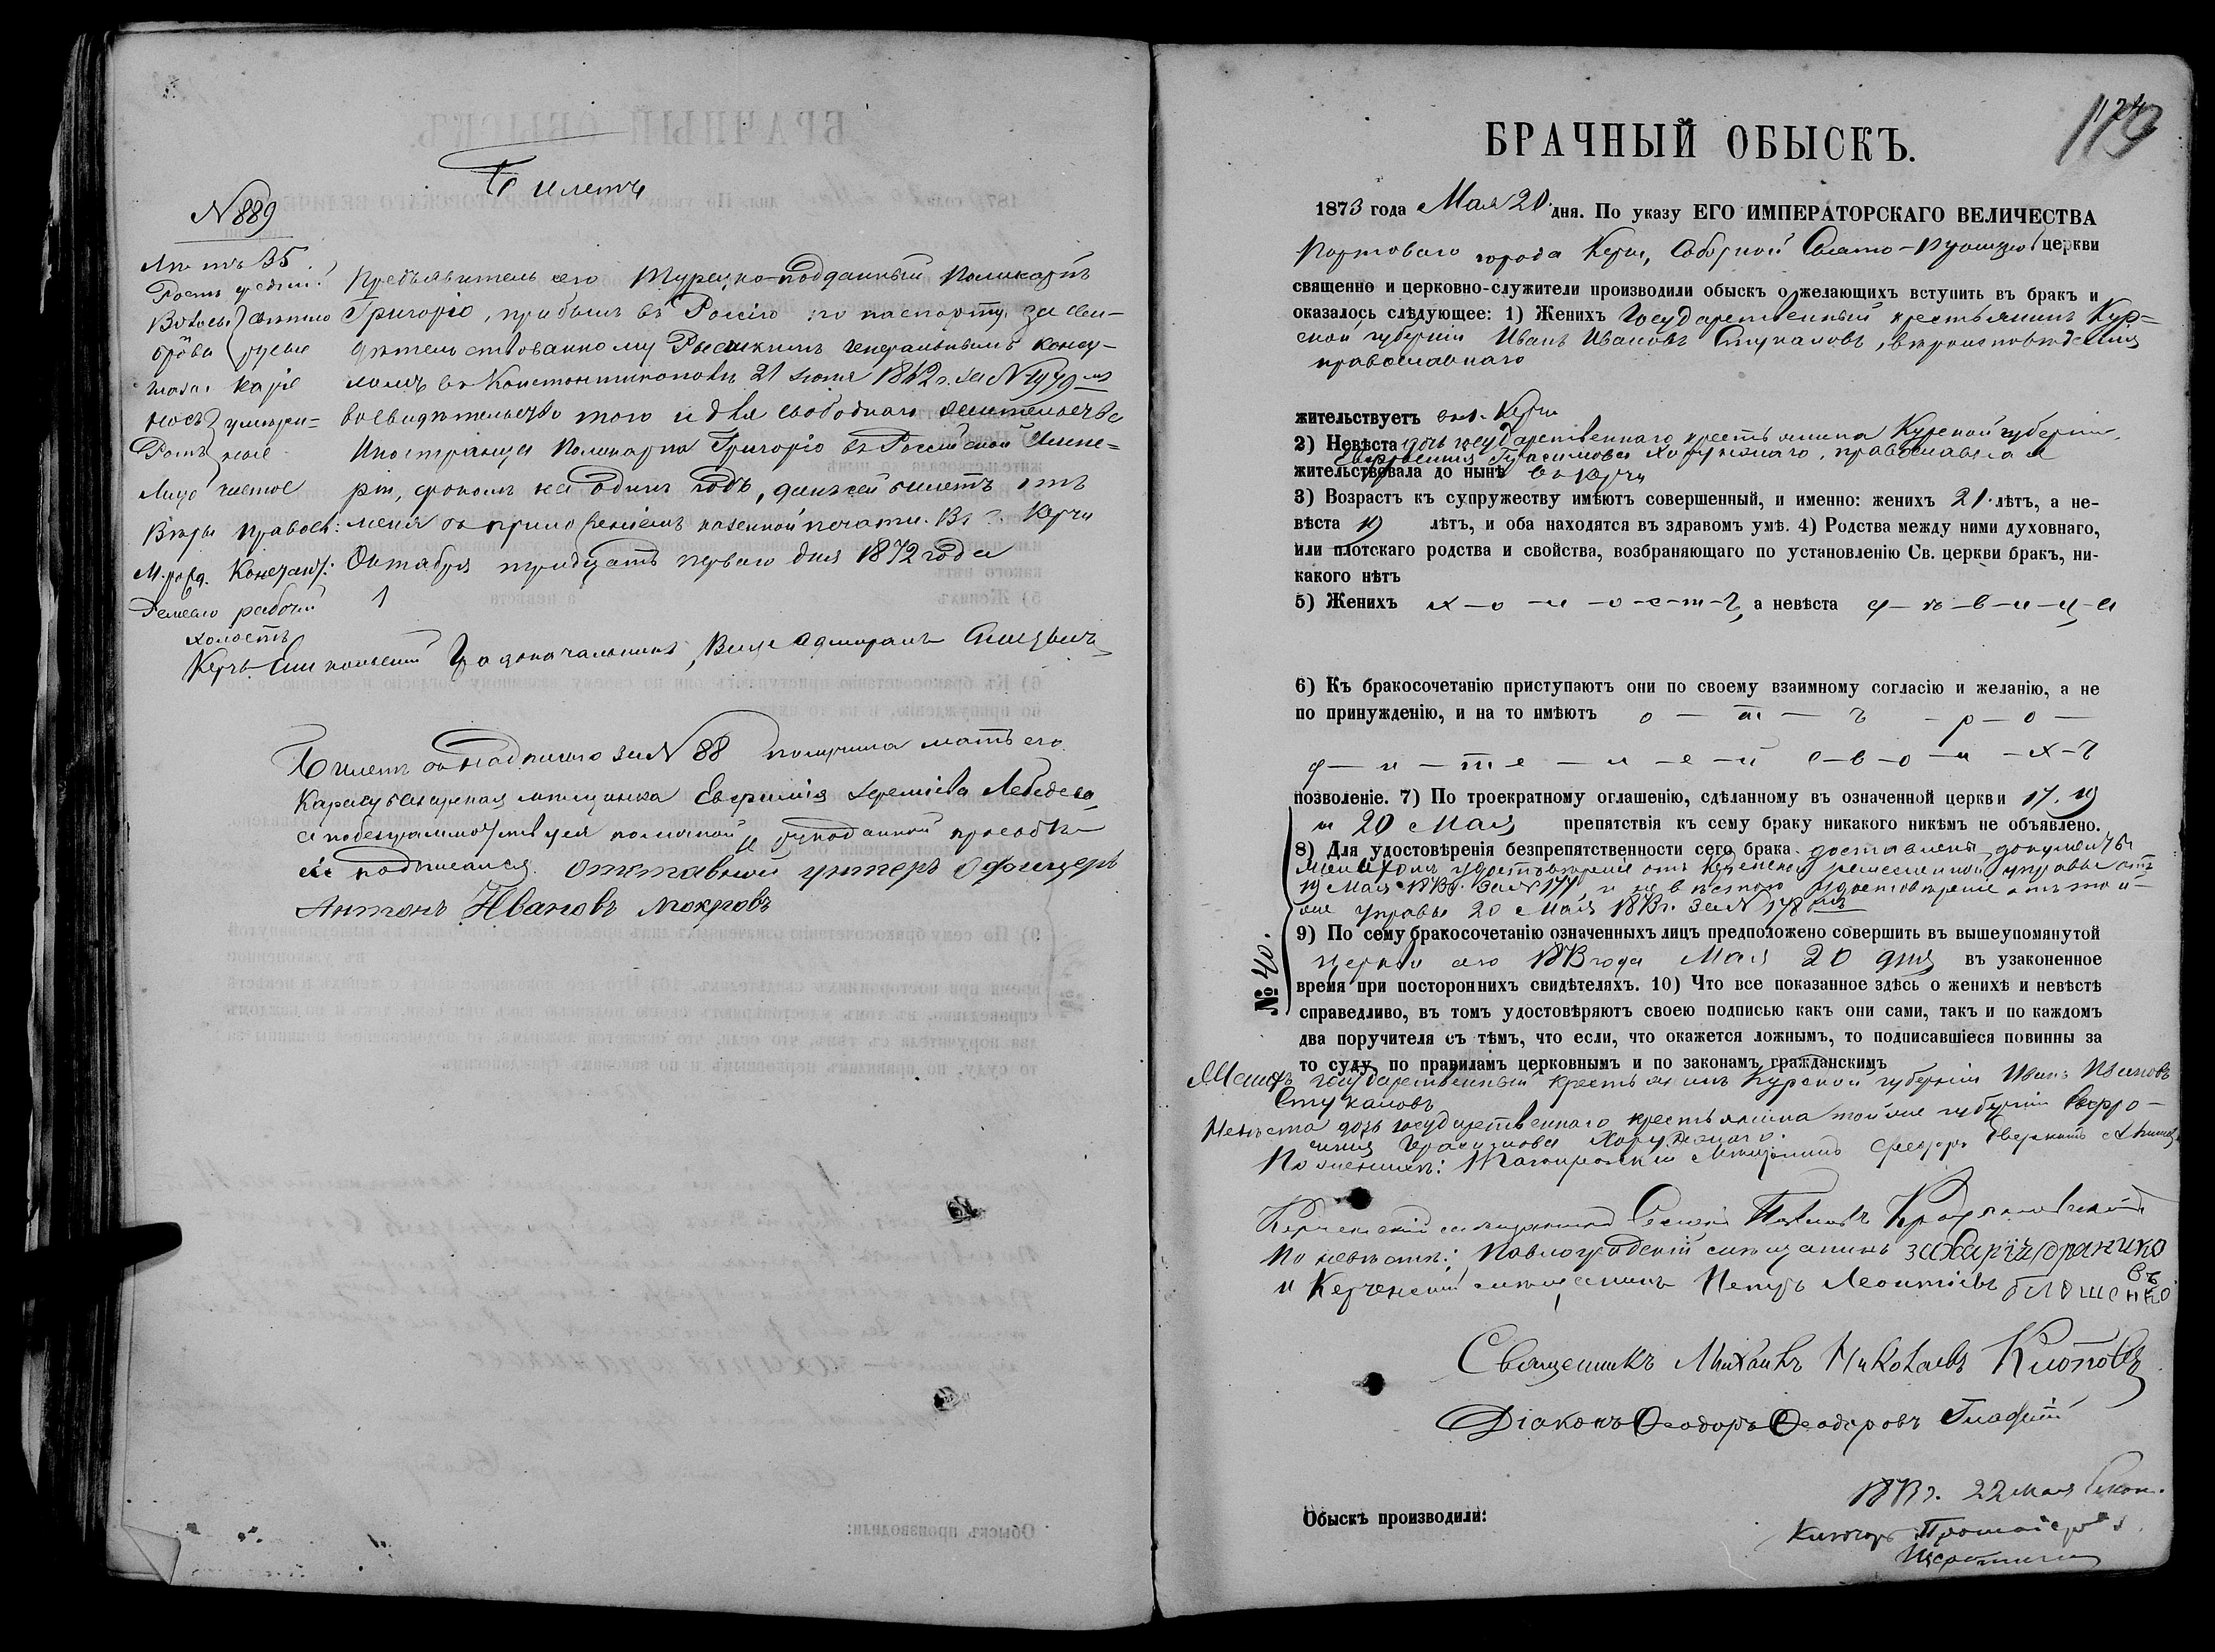 Билетъ
№ 889
Лѣтъ 35.
Ростъ средній
Волосы свѣтло
брови русые
глаза каріе
носъ умѣрен-
Ротъ ные
Лицо чистое
Вѣры правосл:
М. рожд. Констант:
Ремесло рабочій
холостъ
Предъявитель сего Турецко-подданный Поликарпъ
Григоріо, прибылъ въ Россію по паспорту засви-
дѣтельствованному Россійскимъ генеральнымъ консу-
ломъ въ Константинополѣ 21 1862 г. за № 1979мъ
во свидѣтельство того и для свободнаго жительства
Иностранца Поликарпа Григоріо въ Россійской Импе-
ріи, срокомъ на одинъ годъ, данъ сей билетъ отъ
меня съ приложеніемъ казенной печати. Въ г. Керчи
Октября тридцать перваго дня 1872 года
Керчь-Еникольскій Градоначальникъ, Вице Адмиралъ
Билетъ съ надписью за № 88 получила мать его
Карасубазарская мѣщанка Евфимія Іереміева Лебедева,
а по безграмотству ея по личной и рукоданной прозьбѣ
ея подписался отставной унтеръ офицеръ
Антонъ Ивановъ Мокровъ
БРАЧНЫЙ ОБЫСКЪ.
1873 года Мая 20 дня. По указу ЕГО ИМПЕРАТОРСКАГО ВЕЛИЧЕСТВА
Портоваго города Керчи, Соборной Свято-Троицкой церкви
священно и церковно-служители производили обыскъ о желающихъ вступить въ бракъ и
оказалось слѣдующее: 1) Женихъ Государственный крестьянинъ Кур-
ской губерніи Иванъ Ивановъ Стукаловъ, вѣроисповѣданія
православнаго
жительствуетъ въ г. Керчи
2) Невѣста дочь государственнаго крестьянина Курской губерніи,
Евфросинія Герасимова Хорунжаго, православная
жительствовала до нынѣ въ Керчи
3) Возрастъ къ супружеству имѣютъ совершенный, и именно: женихъ 21 лѣтъ, а не-
вѣста 19 лѣтъ, и оба находятся въ здравомъ умѣ. 4) Родства между ними духовнаго,
или плотскаго родства и свойства, возбраняющаго по установленію Св. церкви бракъ, ни-
какого нѣтъ
5) Женихъ х-о-л-о-с-т-ъ, а невѣста д-ѣ-в-и-ц-а
6) Къ бракосочетанію приступаютъ они по своему взаимному согласію и желанію, а не
по принужденію, и на то имѣютъ о — т — ъ - р — о —
д — и — т е — л — е — й с-в-о-и-х-ъ
позволеніе. 7) По троекратному оглашенію, сдѣланному въ означенной церкви 17, 19
и 20 Мая препятствія къ сему браку никакого никѣмъ не объявлено.
8) Для удостовѣренія безпрепятственности сего брака доставлены документы
Женихомъ удостовѣреніе отъ Керченской ремесленной управы отъ
19 Мая 1873 г. за № 177, и невѣстою удостовѣреніе отъ той-
же управы 20 Мая 1873 г. за № 178мъ
9) По сему бракосочетанію означенныхъ лицъ предположено совершить въ вышеупомянутой
церкви сего 1873 года Мая 20 дня въ узаконенное
№ 40.
время при постороннихъ свидѣтеляхъ. 10) Что все показанное здѣсь о женихѣ и невѣстѣ
справедливо, въ томъ удостовѣряютъ своею подписью какъ они сами, такъ и по каждомъ
два поручителя съ тѣмъ, что если, что окажется ложнымъ, то подписавшіеся повинны за
то суду, по правиламъ церковнымъ и по законамъ гражданскимъ
Женихъ государственный крестьянинъ Курской губерніи Иванъ Ивановъ
Стукаловъ
Невѣста дочь государственнаго крестьянина той же губерніи Евфро-
синія Герасимова Хорунжаго.
По женихѣ: Таганрогскій мѣщанинъ Федоръ
Керченскій мѣщанинъ
По невѣстѣ: Павлоградскій мѣщанинъ Захарій
и Керченскій мѣщанинъ Петръ Леонтіевъ
Священникъ Михаилъ Николаевъ Клоповъ
Діаконъ Ѳеодоръ Ѳеодоровъ
1873 г. 22 Мая
Обыскъ производили:
Ключарь Протоіерей